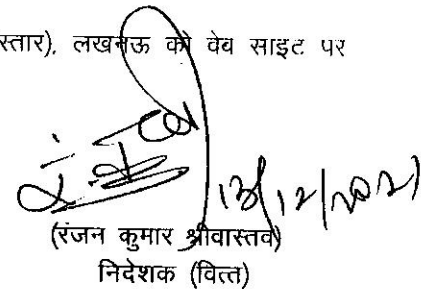 स्तार), लखनऊ की वेब साइट पर
13/12/2021
(रंजन कुमार श्रीवास्तव)
निदेशक (वित्त)